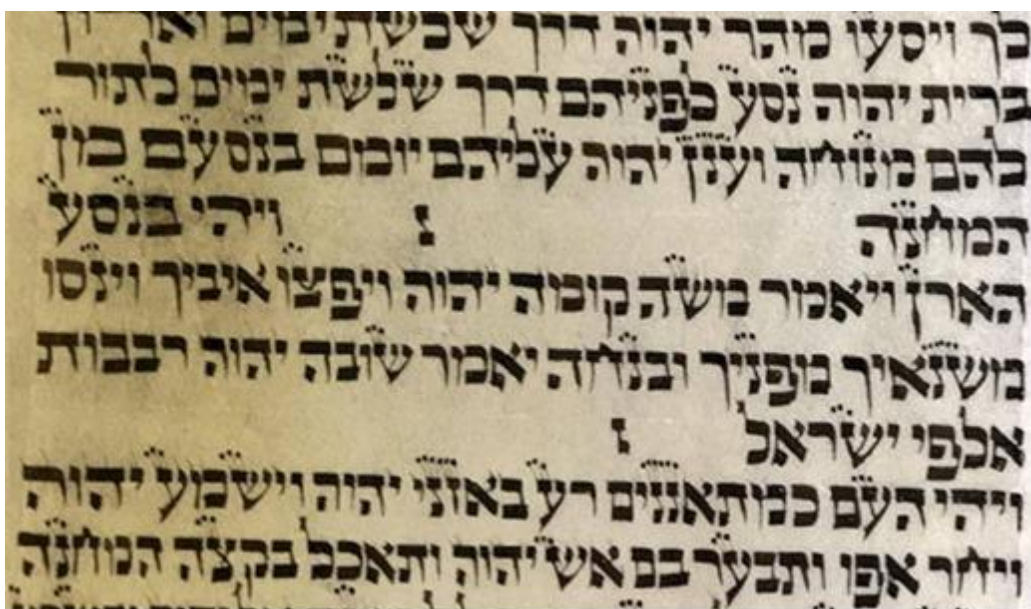 לך ויסעו מהר יהוה דרך שלשת ימים וארון
ברית יהוה נסע לפניהם דרך שלשת ימים לתור
להם מנוחה וענן יהוה עליהם יומם בנסעם מן
המחנה ׆ ויהי בנסע
הארן ויאמר משה קומה יהוה ויפצו איביך וינסו
משנאיך מפניך ובנחה יאמר שובה יהוה רבבות
אלפי ישראל ׆
ויהי העם כמתאננים רע באזני יהוה וישמע יהוה
ויחר אפו ותבער בם אש יהוה ותאכל בקצה המחנה